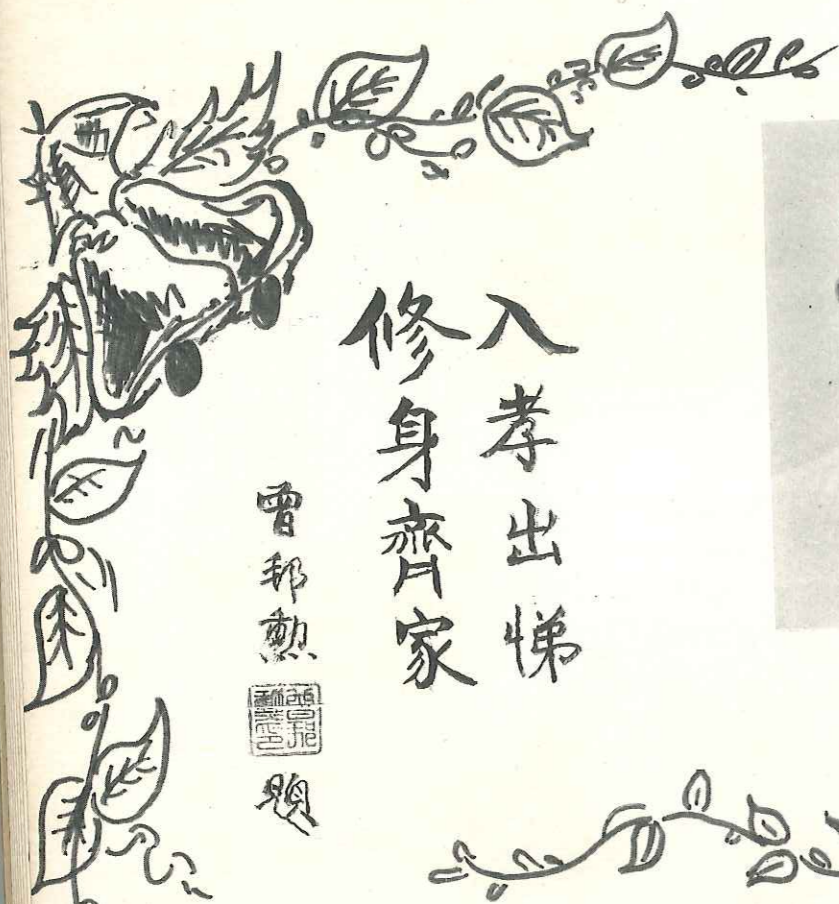 入孝出悌
修身齊家
曾邦勲
題